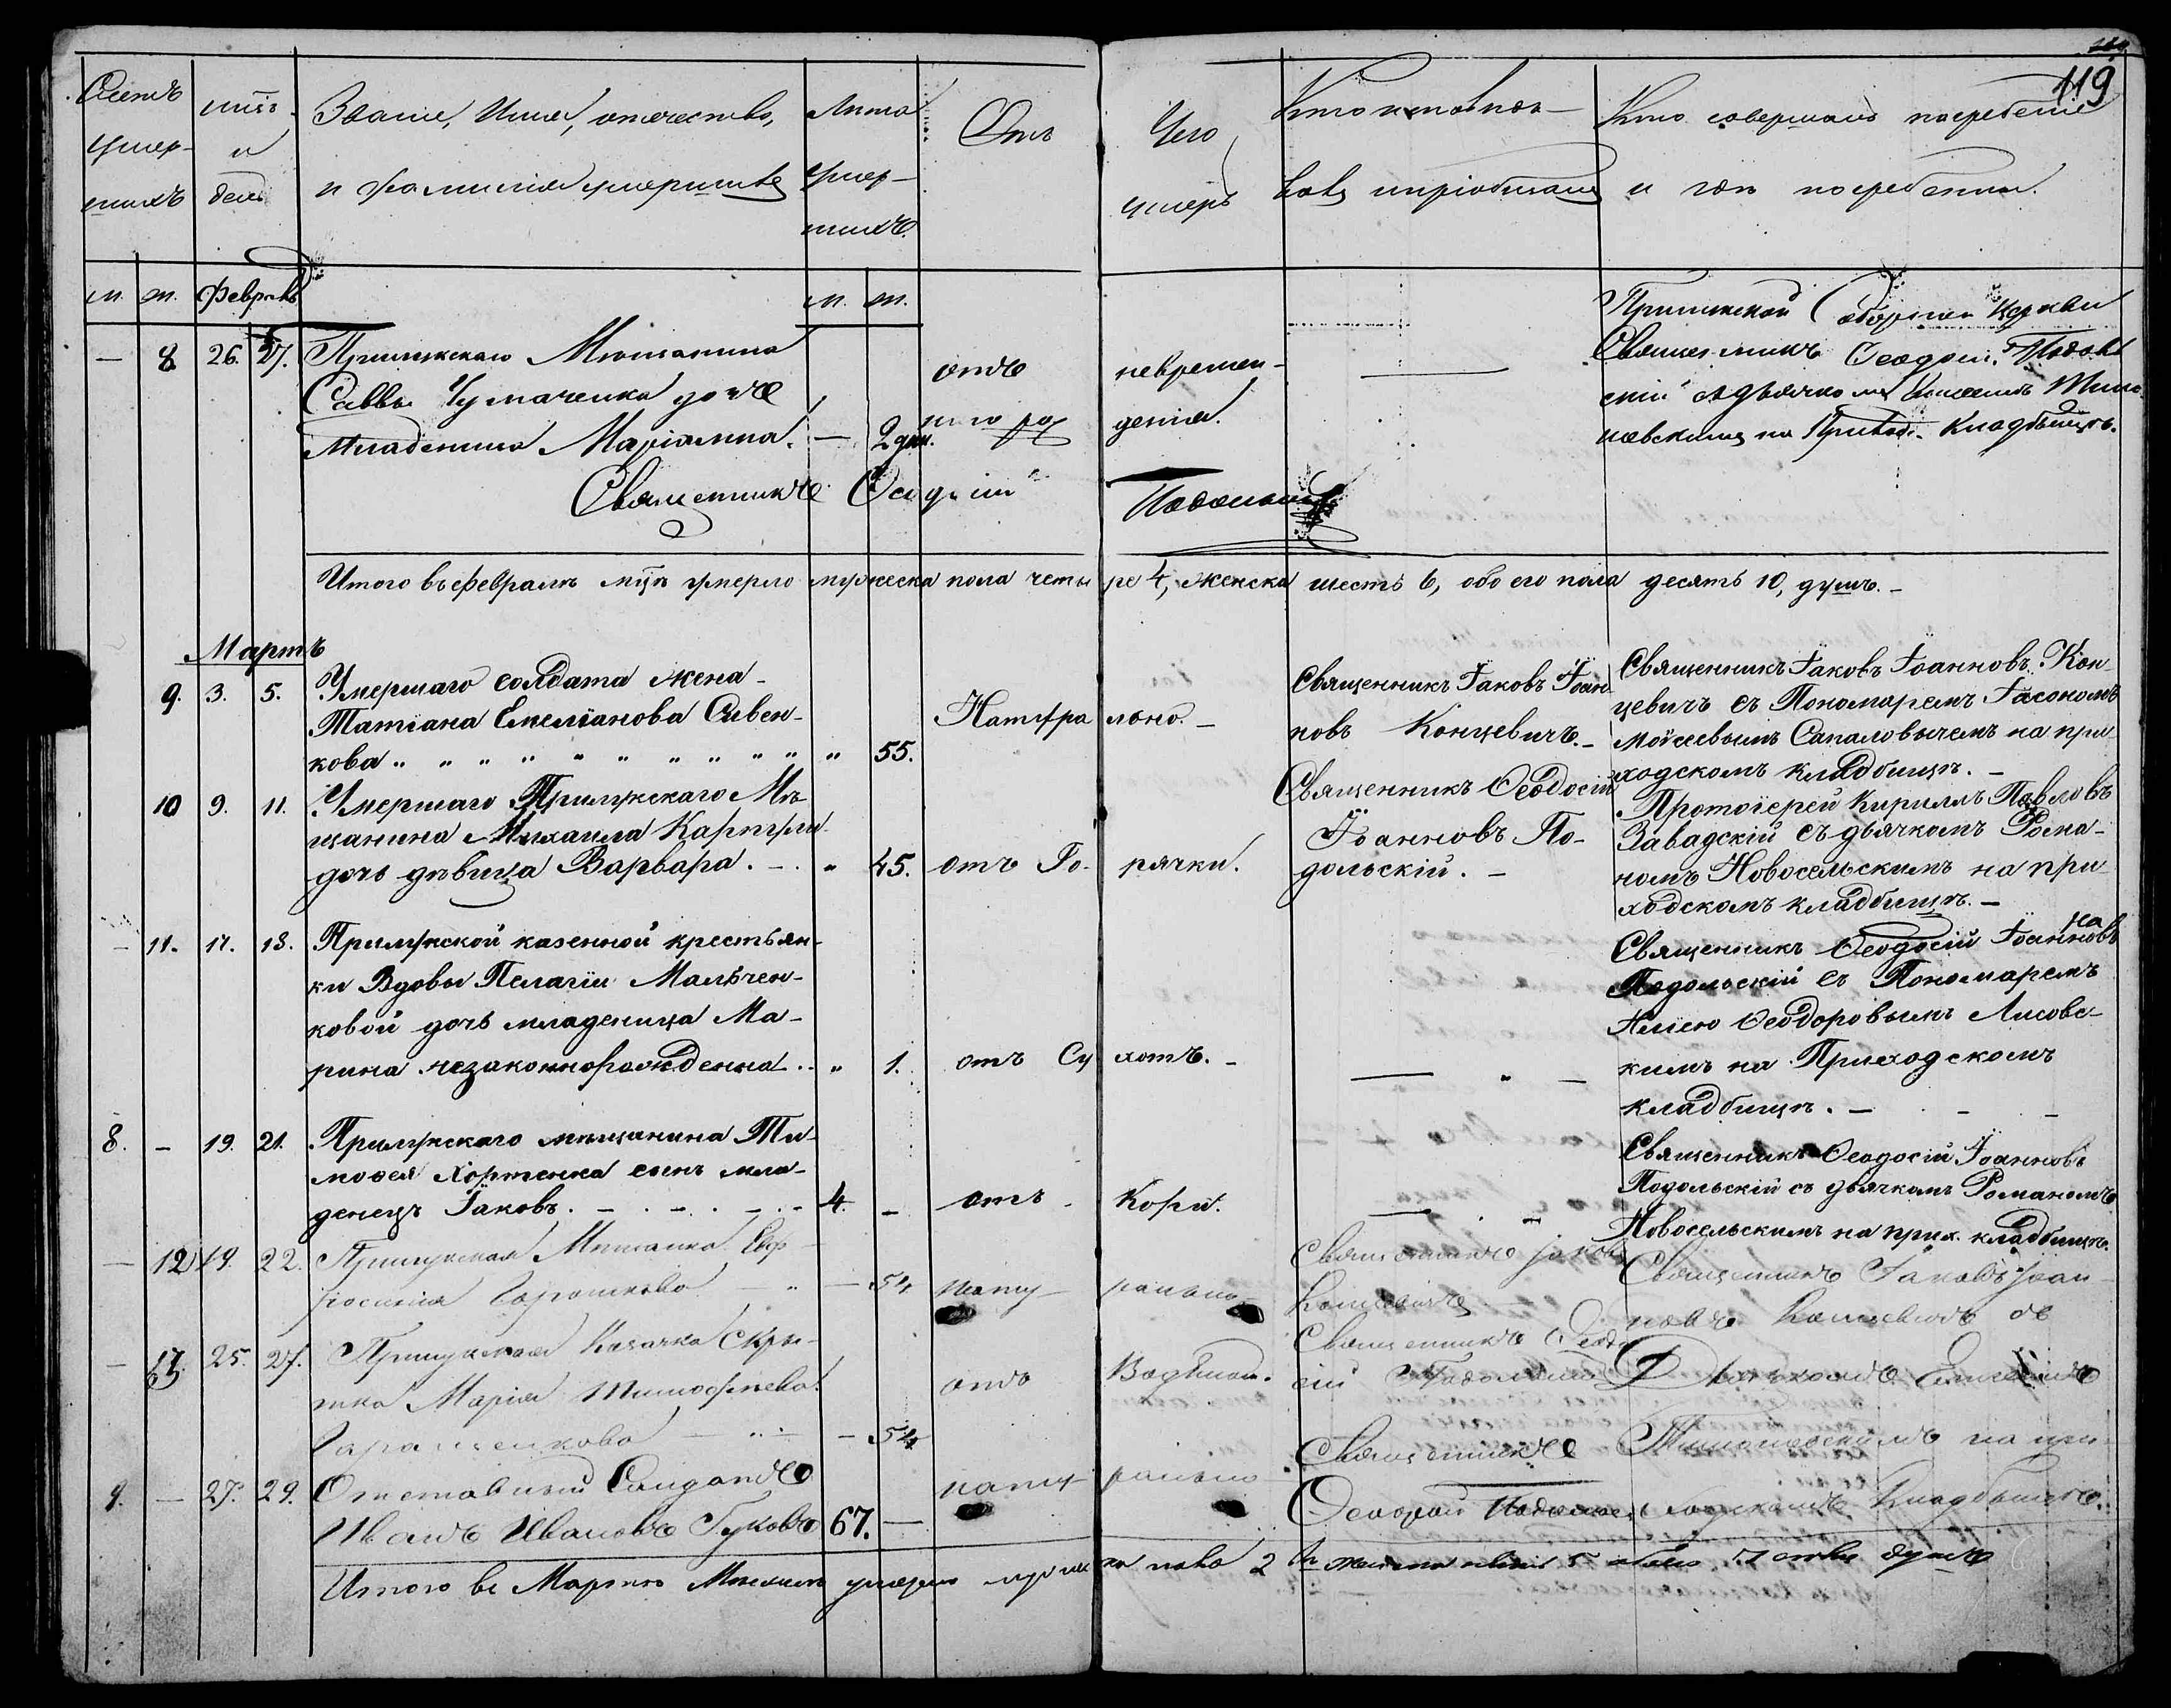 119
Счетъ умер- шихъ
мцъ и день
Званіе, Имя, отечество, и фамилія умершихъ
Лѣта умер- шихъ.
Отъ Чего умеръ
Кто исповѣды- валъ и пріобщалъ
Кто совершалъ погребеніе и гдѣ погребенъ.
м. ж. Февраль м. ж.
— 8 26. 27. Прилукскаго Мѣщанина
Саввы Чумаченка дочь
Младеница Маріамна. — 2 дня.
отъ невремен-
наго рожденія.
—
Прилукской Соборной Церкви
Священникъ Ѳеодосій Подоль
скій съ дьячкомъ
на Приход. Кладбищѣ.
Священникъ Ѳеодосій Подольскій
Итого въ февралѣ мцѣ умерло мужеска пола четыре 4, женска шесть 6, обоего пола десять 10, душъ. —
Мартъ
9. 3. 5. Умершаго солдата жена
Татіана Емеліанова Сивен-
кова „ „ „ „ „ „ „ „ „ „ „ 55.
Натура льно. —
Священникъ Іаковъ Іоан-
новъ Концевичъ. —
Священникъ Іаковъ Іоанновъ Кон
цевичъ съ Пономаремъ Іасономъ
Моѵсеевымъ Сапаловычемъ на при
ходскомъ кладбищѣ. —
10 9. 11. Умершаго Прилукскаго Мѣ
щанина Михаила Карпгри
дочь дѣвица Варвара. — . „ 45.
отъ Го- рячки.
Священникъ Ѳеодосій
Іоанновъ По-
дольскій. —
Протоіерей Кириллъ Павловъ
Завадскій съ дьячкомъ Рома-
номъ Новосельскимъ на при
ходскомъ кладбищѣ. —
— 11. 17. 18. Прилукской казенной крестьян-
ки Вдовы Пелагіи Мальчен-
ковой дочь младеница Ма-
рина незаконнорожденна .. „ 1.
отъ Су хотъ. —
— „ —
Священникъ Ѳеодосій Іоанновъ
Подольскій съ Пономаремъ
Иліею Ѳеодоровымъ Лисовс-
кимъ на Приходскомъ
кладбищѣ. — . — —
8. — 19. 21. Прилукскаго мѣщанина Ти-
моѳея Хортенка сынъ мла-
денецъ Іаковъ. — . — . — . — 4. —
отъ Кори.
— . —
Священникъ Ѳеодосій Іоанновъ
Подольскій съ дьячкомъ Романомъ
Новосельскимъ на прих. кладбищѣ.
— 12 19. 22. Прилукская Мѣщанка Евф
росинія Горошкова — „ — 54
нату рально
Священникъ Іаковъ
Концевичъ
Священникъ Іаковъ Іоан-
новъ Концевичъ съ
— 13. 25. 27. Прилукская Козачка
Марія Тимофѣева
Гаращенкова — „ — — 54
отъ Водяной.
Священникъ Ѳеодо
сій Подольскій
Дьячкомъ
на при-
9. — 27. 29. Отставный Солдатъ
Иванъ Ивановъ Гуковъ 67. —
нату рально
Священникъ
Ѳеодосій Подольскій
ходскомъ Кладбищѣ.
Итого въ Мартѣ Месяцѣ умерло мужеска пола 2 женска 5 душъ